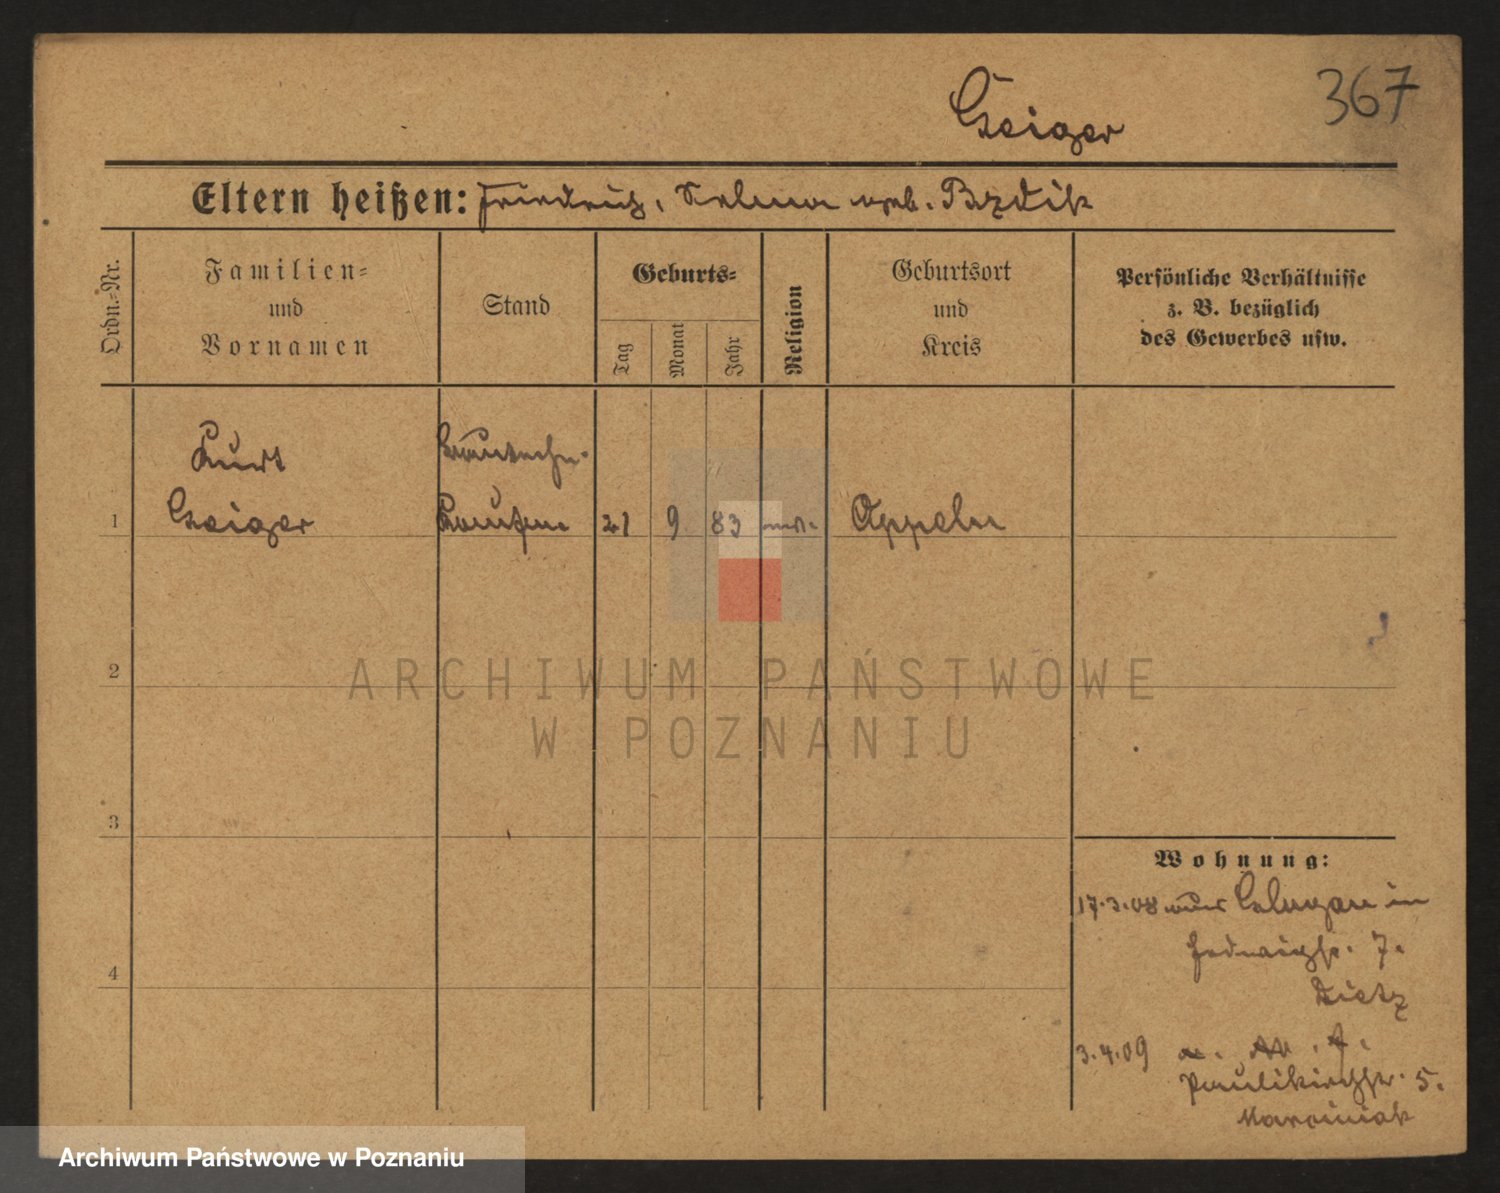 367
Geiger
Eltern heißen: Friedrich, Selma geb. Bzdik
Ordn.=Nr.
Familien=
und
Vornamen
Stand
Geburts=
Tag
Monat
Jahr
Religion
Geburtsort
und
Kreis
Persönliche Verhältnisse
z. B. bezüglich
des Gewerbes usw.
Kurt
1 Geiger 21 9 83 Oppeln
2
3
4
ARCHIWUM PAŃSTWOWE
W POZNANIU
Wohnung:
17.3.08 aus in
Hedwigstr. 7.
Dietz
3.4.09
Paulikirchstr. 5.
Marciniak
Archiwum Państwowe w Poznaniu